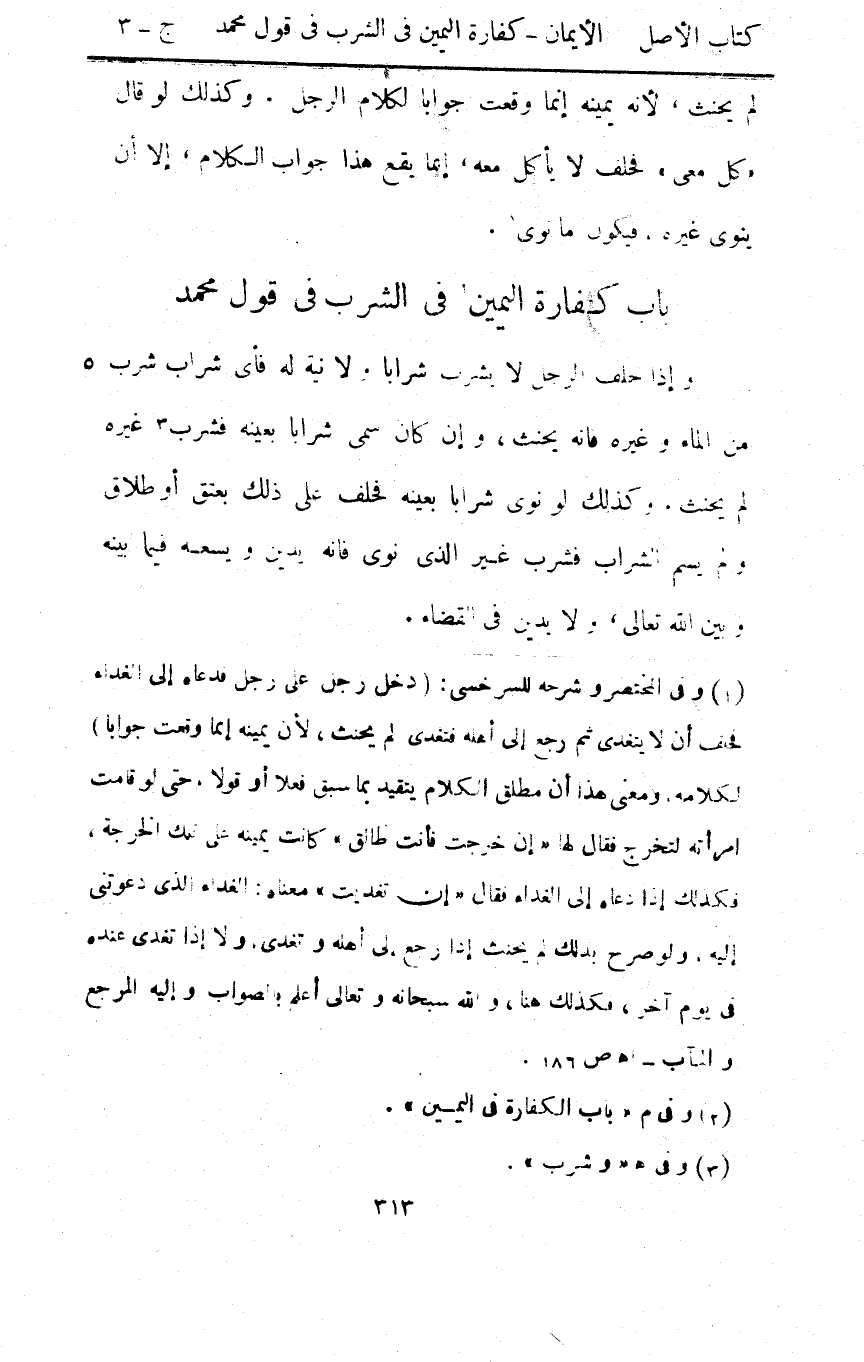 كتاب الأصل الأيمان - كفارة اليمين فى الشرب فى قول محمد ج - ٣
لم يحنث، لأنه يمينه إنما وقعت جوابا لكلام الرجل . وكذلك لو قال
«كل معى» فحلف لا يأكل معه، إنما يقع هذا جواب الكلام، إلا أن
ينوى غيره، فيكون ما نوى١ .
باب كفارة اليمين٢ فى الشرب فى قول محمد
و إذا حلف الرجل لا يشرب شرابا و لا نية له فأى شراب شرب ٥
من الماء و غيره فانه يحنث، و إن كان سمى شرابا بعينه فشرب٣ غيره
لم يحنث. وكذلك لو نوى شرابا بعينه فحلف على ذلك بعتق أو طلاق
و لم يسم الشراب فشرب غير الذى نوى فانه يدين و يسعه فيما بينه
و بين الله تعالى، و لا يدين فى القضاء .
(١) و فى المختصر و شرحه للسرخسى: (دخل رجل على رجل فدعاه إلى الغداء
فحلف أن لا يتغدى ثم رجع إلى أهله فتغدى لم يحنث، لأن يمينه إنما وقعت جوابا)
لكلامه. ومعنى هذا أن مطلق الكلام يتقيد بما سبق فعلا أو قولا، حتى لو قامت
امرأته لتخرج فقال لها «إن خرجت فأنت طالق» كانت يمينه على تلك الخرجة،
فكذلك إذا دعاه إلى الغداء فقال «إن تغديت» معناه: الغداء الذى دعوتنى
إليه، و لو صرح بذلك لم يحنث إذا رجع إلى أهله و تغدى، و لا إذا تغدى عنده
فى يوم آخر، فكذلك هنا، و الله سبحانه و تعالى أعلم بالصواب و إليه المرجع
و المآب ــ اه ص ١٨٦ .
(٢) و فى م «باب الكفارة فى اليمين» .
(٣) و فى ه «و شرب» .
٣١٣